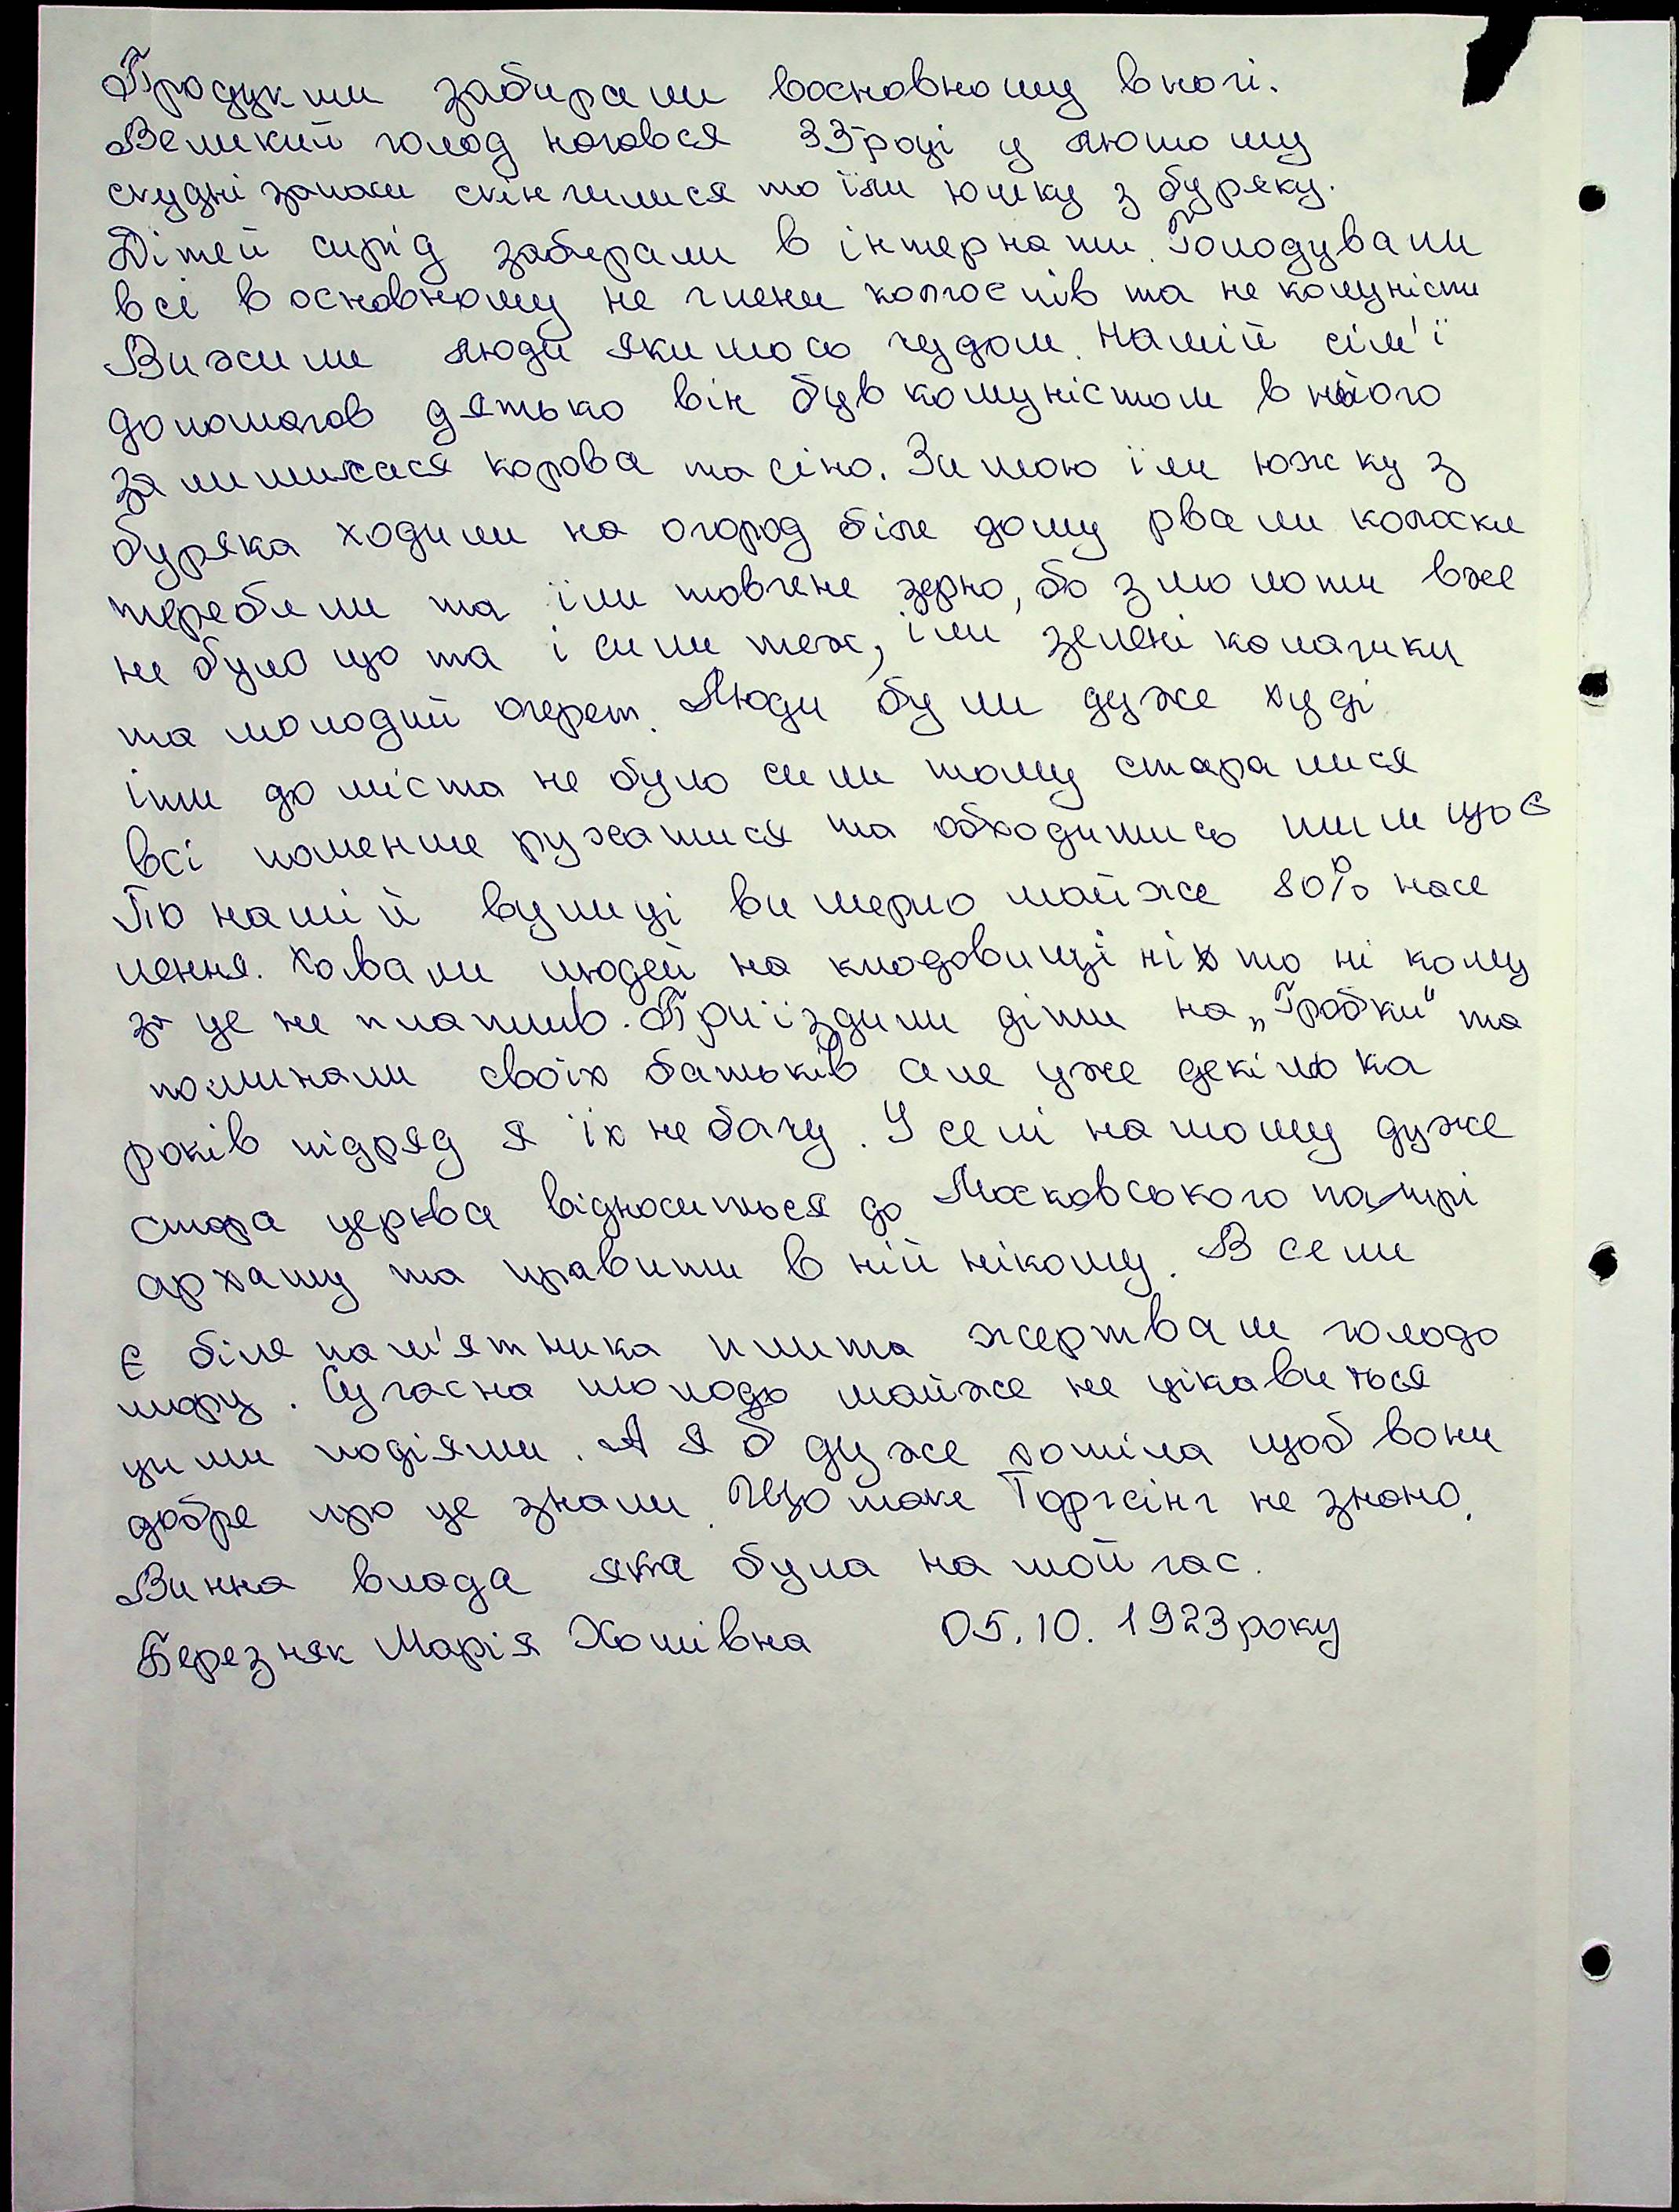 Продукти забирали восновному вночі.
Великий голод почався 33році у лютому
скудні запаси скінчилися то їли юшку з буряку.
Дітей сирід забирали в інтернати. Голодували
всі в основному не члени колгоспів та не комуністи
Вижили люди якимось чудом. Нашій сім'ї
допомогов дятько він був комуністом в нього
залишилася корова та сіно. Зимою їли южку з
буряка ходили на огород біля дому рвали колоски
теребили та їли товчене зерно, бо з молоти вже
не було що та і сили теж, їли зелені калачики
та молодий очерет. Люди були дуже худі
іти до міста не було сили тому старалися
всі поменше рухатися та обходитись тим що є
По нашій вулиці вимерло майже 80% насе
лення. Ховали людей на кладовищі ніхто ні кому
за це не платив. Приїздили діти на „Гробки" та
поминали своїх батьків але уже декілька
років підряд я їх не бачу. У селі нашому дуже
стара церква відноситься до Московського патрі
архату та правити в ній нікому. В сели
є біля пам'ятника плита жертвам голодо
мору. Сучасна молодь майже не цікавиться
цими подіями. А я б дуже хотіла щоб вони
добре про це знали. Що таке Торгсінг не знаю.
Винна влада яка була на той час.
Березняк Марія Хомівна 05.10.1923року